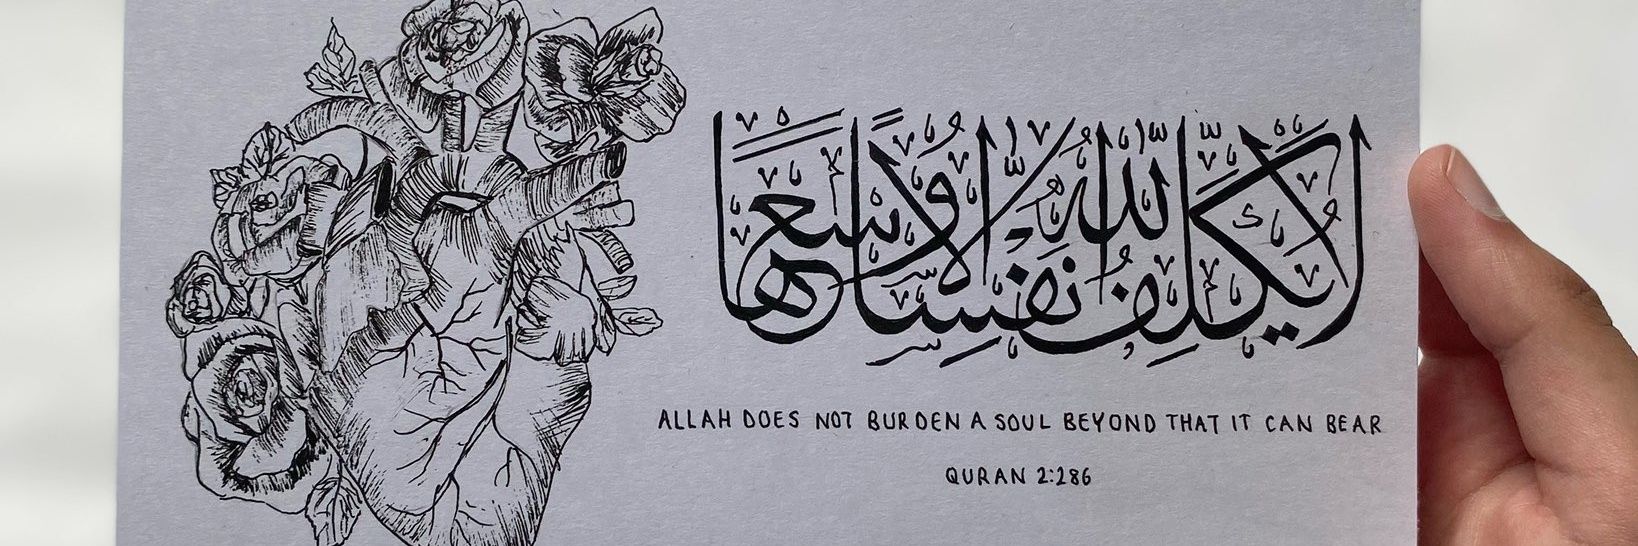 لا يكلف الله نفسا إلا وسعها
ALLAH DOES NOT BURDEN A SOUL BEYOND THAT IT CAN BEAR
QURAN 2:286